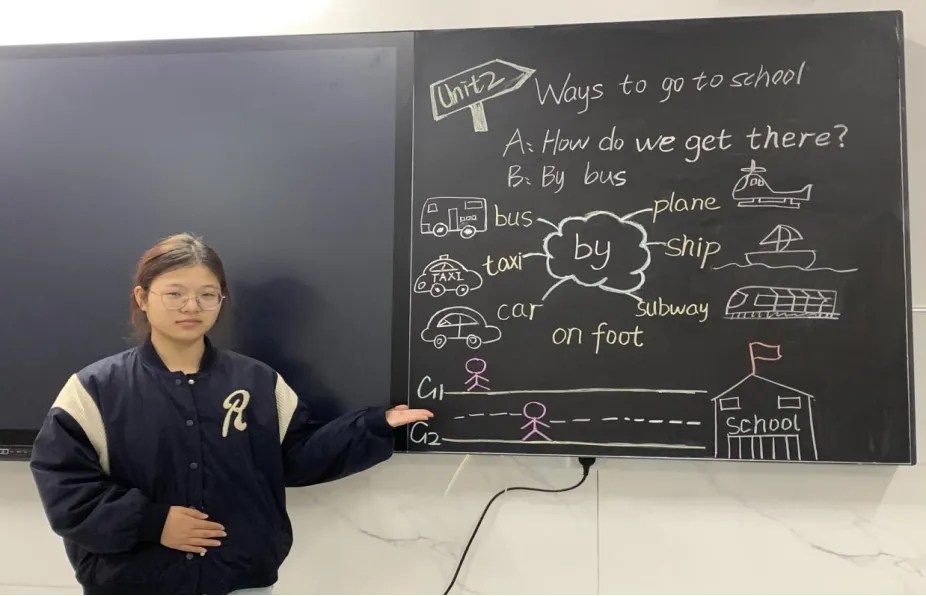 Unit2
Ways to go to school
A: How do we get there?
B: By bus
bus
plane
by
taxi
TAXI
ship
car
subway
on foot
G1
G2
School
R